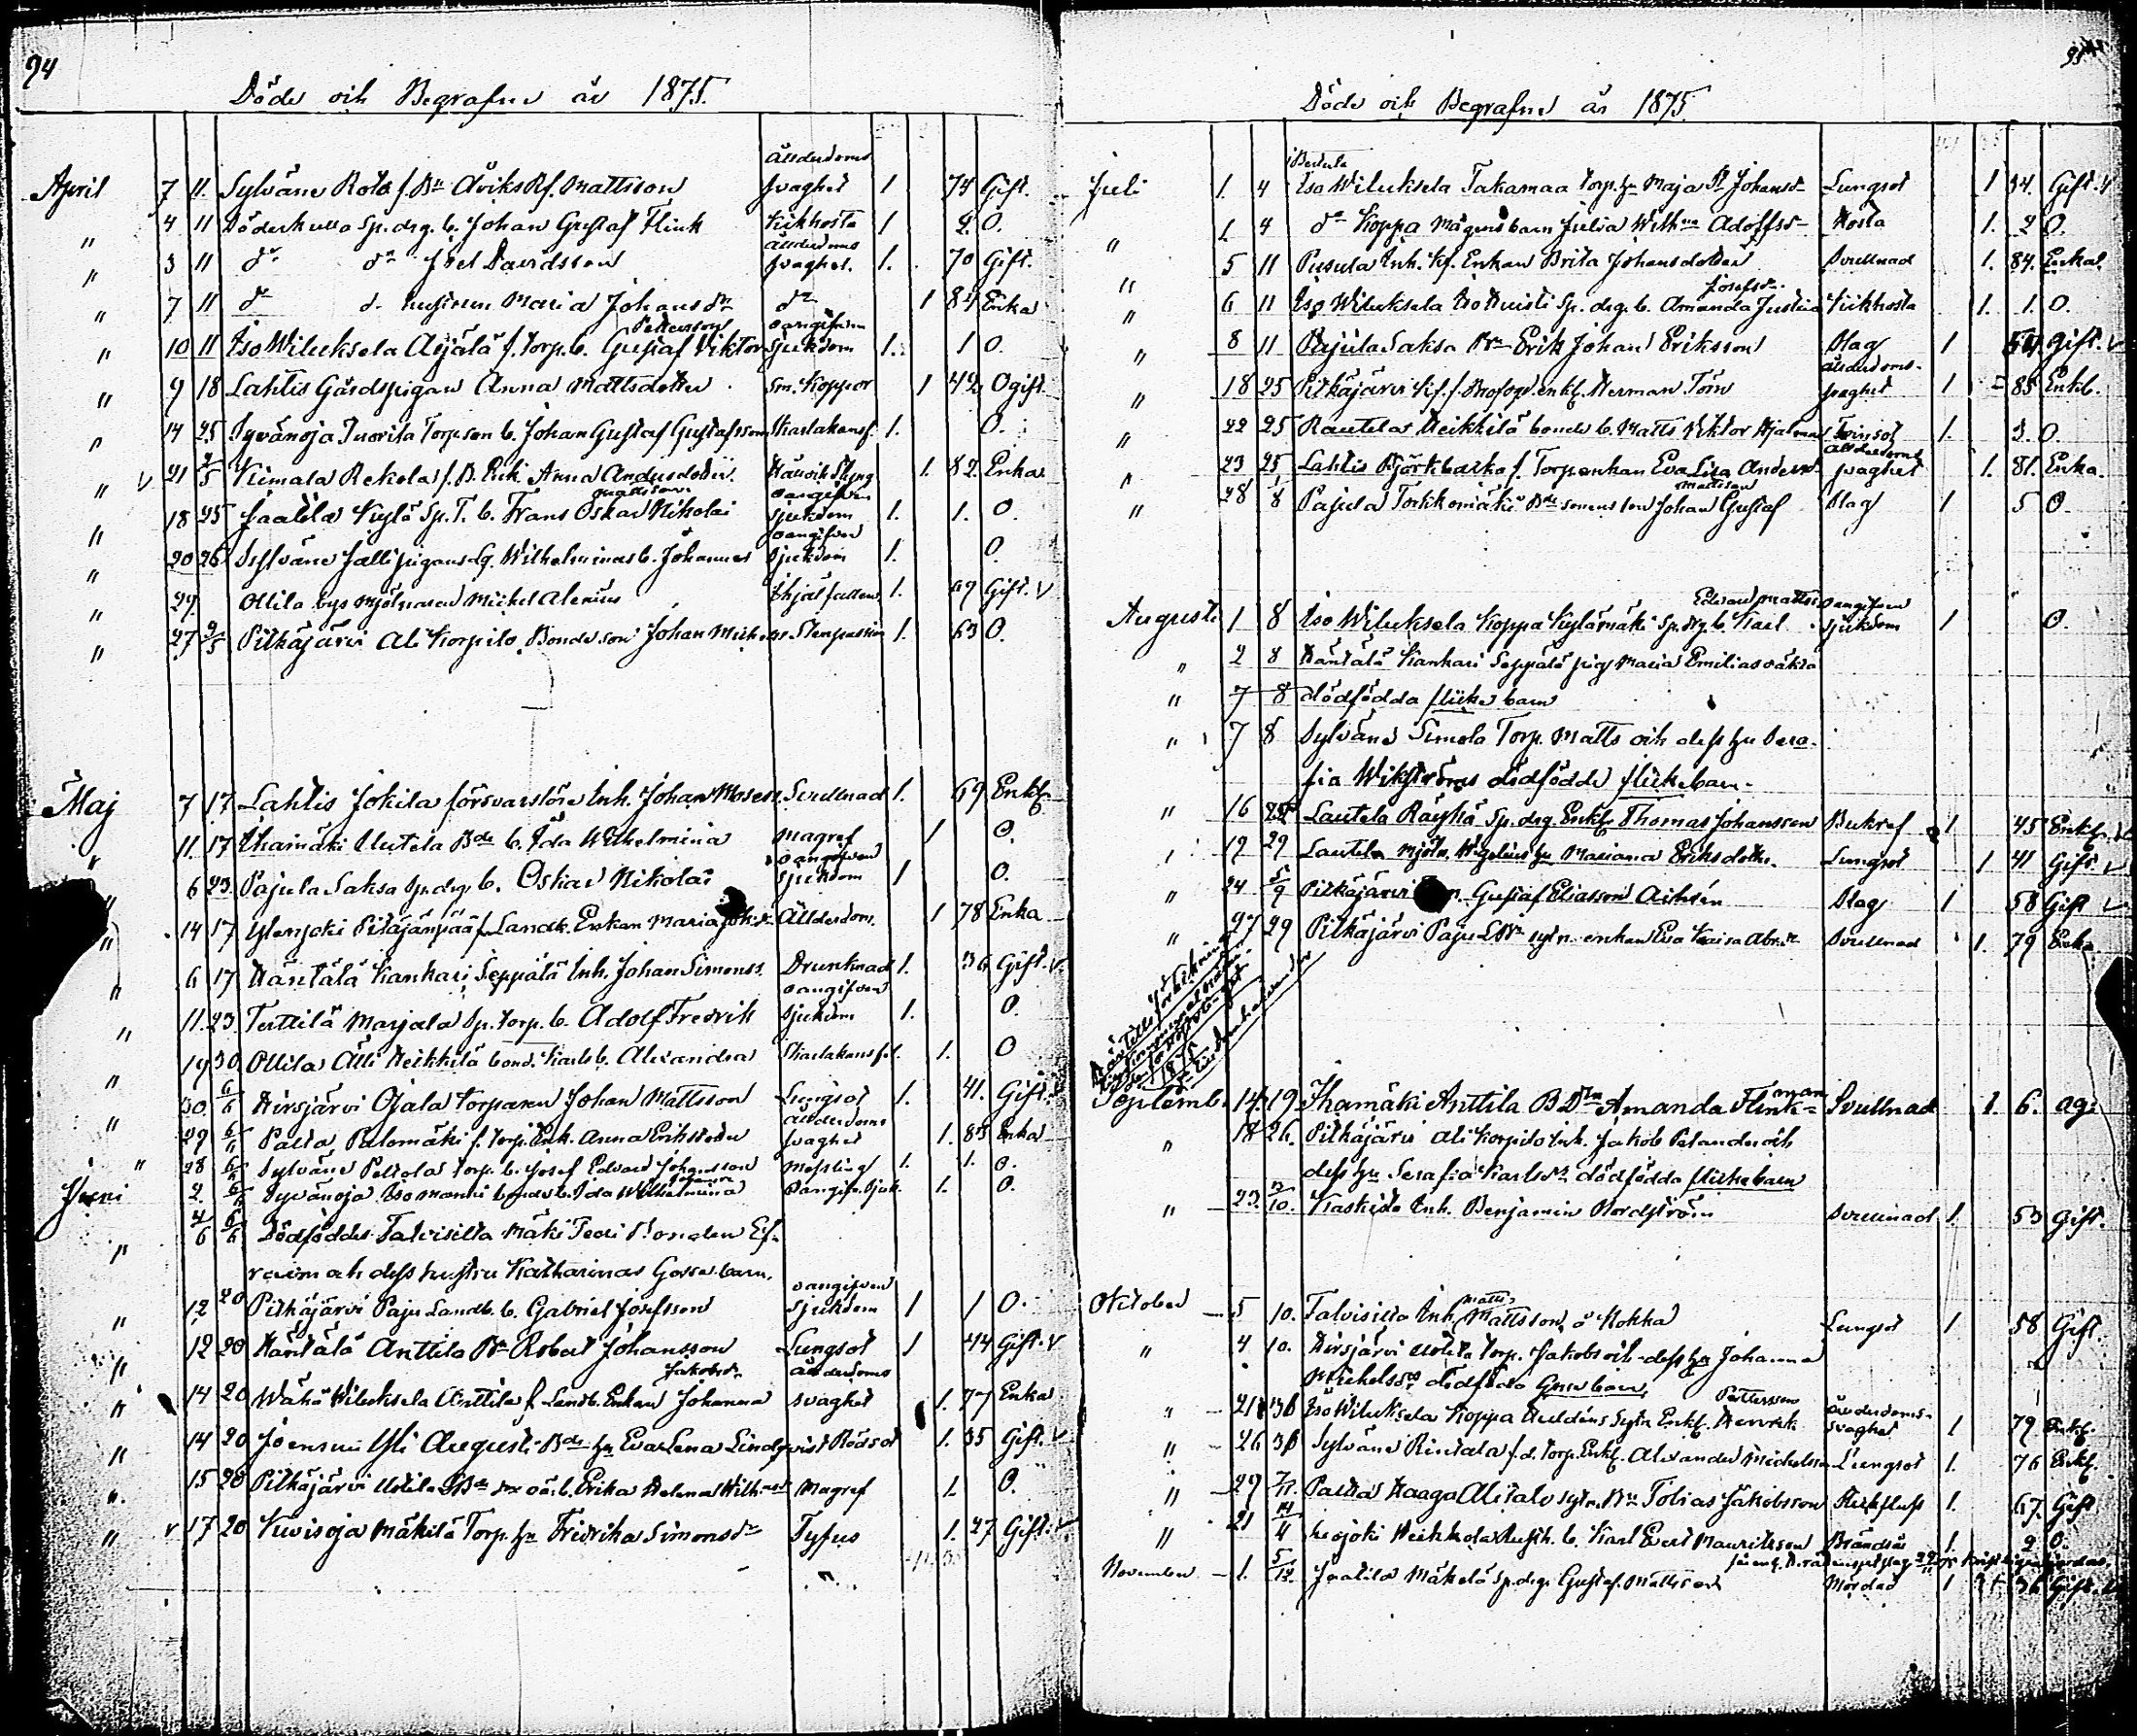 94
Döde och Begrafne år 1875.
April 7 11. Sylvänä Rota f. Bn Eriks Mattsson ålderdoms svaghet 1 74 Gift.
" 4 11 Söderkulla Sp. drg. b. Johan Gustaf Flink Kikhosta 1 2 O.
" 3 11 do do Joel Davidsson ålderdoms svaghet. 1. 70 Gift.
" 7 11 do d. hustrun Maria Johansdr do 1 84 Enka
" 10 11 Iso Wiluksela Aijälä f. torp. b. Gustaf Viktor Pettersson oangifven sjukdom 1. 1 O.
" 9 18 Lahtis Gårdspigan Anna Mattsdotter Sm. Koppor 1 42 Ogift
" 14 25 Syvänoja Tuorila Torp. son b. Johan Gustaf Gustafsson Skarlakansf. 1. O.
" 21 2/5 Kiimala Rekola f. B. Enk. Anna Andersdotter Håll och Styng 1. 82. Enka
" 18 25 Jaatila Kylä Sp. T. b. Frans Oskar Nikolai Mattsson oangifven sjukdom 1. 1. O.
" 20 26 Sylvänä Jalli pigans Wilhelminas b. Johannes oangifven sjukdom 1. O.
" 29. Ollila bys Mjölnaren Mickel Alenius Ihjälfallen 1. 69 Gift. V
" 27 2/5 Pitkäjärvi Ali Korpilo Bondeson Johan 1. 63 O.
Maj 7 17. Lahtis Jokila försvarslöse Inh. Johan Mosesson Svullnad 1. 69 Enkl.
" 11. 17 Ihamäki Uutela Bde b. Ida Wilhelmina Magref 1 O.
" 6 23. Pajula Saksa Sp. drg. b. Oskar Nikolai oangifven sjukdom 1 O.
" 14 17 Ylenjoki Pitäjänpää f. Landb. Enkan Maria Ålderdom. 1 78 Enka
" 6 17 Häntälä Kankari Seppälä Inh. Johan Simonss. Drunknad 1. 36 Gift. V.
" 11. 23. Terttilä Marjala Sp. torp. b. Adolf Fredrik oangifven sjukdom 1. O.
" 19 30. Ollila Alli Heikkilä bond. Karls b. Alexandra Skarlakansf. 1. O
" 30. 6/6 Hirsjärvi Ojala torparen Johan Mattsson Lungsot 1. 41. Gift.
" 29 6/6 Palta Palomäki f. torp. Enk. Anna Eriksdotter Ålderdoms svaghet 1. 83 Enka
" 28 6/6 Sylvänä Peltola torp. b. Josef Edvard Johansson Messling 1. 1. O.
Juni 2. 6/6 Syvänoja Iso Manni bonde b. Ida Wilhelmina oangifv. Sjuk. 1. O.
" 4/6 6/6 Dödföddes Talvisilta Mäki Teeri Bonden Ef-
raim och dess hustru Katharinas Gosse barn.
" 12 20 Pitkäjärvi Paju Landb. b. Gabriel Josefsson oangifven sjukdom 1 1 O.
" 12 20 Häntälä Anttila Bn Robert Johansson Lungsot 1 44 Gift. V
" 14 20 Wähä Wiluksela Anttila f. Landb. Enkan Johanna Jakobsdr ålderdoms svaghet 1. 77 Enka
" 14 20 Joensuu Yli Augusti Bde hu Eva Lena Lindqvist Rödsot 1. 35 Gift. V
" 15 20 Pitkäjärvi Uotila b. Erika Helena Magref 1. O.
" v 17 20 Kuvisoja Mäkilä Torp. hu Fredrika Simonsdr Tyfus 1. 27 Gift. V
95
Döde och Begrafne år 1875.
Juli 1. 4 Iso Wiluksela Takamaa torp. hu Maja St. Johansdr Lungsot 1 34. Gift. V
" 1 4 do Koppa Mågens barn Julia Wilhna Adolfsdr Hosta 1. 2 O.
" 5 11 Pusula Inh. Enkan Brita Johansdotter Svullnad 1. 84. Enka
" 6 11 Iso Wiluksela Iso Huisti Sp. drg. b. Amanda Justina Josefsdr. Kikhosta 1. 1. O.
" 8 11 Pajula Saksa Bn Erik Johan Eriksson Slag 1 54. gift. V
" 18 25 Pitkäjärvi enkl. Herman Törn ålderdoms svaghet 1 85 Enkl.
" 22 25 Rautela Heikkilä bonde b. Matts Viktor Hjalmar Tvinsot 1. 3. O.
" 23 25 Lahtis Björkbacka f. Torpenkan Eva Lisa Andersdr. Ålderdoms svaghet 1. 81. Enka
" 28 8 Pajula Torkkomäki Bde sonens son Johan Gustaf Mattsson Slag 1 5 O.
Augusti 1 8 Iso Wiluksela Koppa Kylänmäki Sp. drg. b. Karl Edvard Mattss. oangifven sjukdom 1 O.
" 2 8 Häntälä Kankari Seppälä pig. Maria Emilias oäkta
" 7 8 dödfödda flicke barn
" 7 8 Sylvänä Simola Torp. Matts och dess hu Sera-
fia Wikströms dödfödde flickebarn.
" 16 22 Lautela Räyhä Sp. drg. Enkl. Thomas Johansson Bukref 1 45 Enkl. V
" 19 29 Lautela Mjöln. hu Mariana Eriksdotter. Lungsot 1 41 Gift. V
" 24 5/9 Pitkäjärvi Gustaf Eliasson Slag 1 58 Gift V
" 27 29 Pitkäjärvi Paju sytn. enkan Eva Kaisa Abr.dr Svullnad 1. 79 Enka
Septemb. 14. 19. Ihamäki Anttila B Dtn Amanda Flinkman Svullnad 1. 6. og:
" 18 26. Pitkäjärvi Ali Korpilo Inh. Jakob Pelander och
dess hu Serafia Karlsdr dödfödda flickebarn
" 23. 3/10. Kaskisto Inh. Benjamin Nordström Svullnad 1. 53 Gift.
October 5 10. Talvisilta Inh. Matts Mattsson å Nokka Lungsot 1 58 Gift.
" 4 10. Hirsjärvi Uotila torp. Jakobs och dess hu Johanna
Michelsdr dödfödda Gosse barn.
" 21 Iso Wiluksela Koppa Sytn. Enkl. Henrik Pettersson Ålderdoms svaghet 1 79 Enkl.
" 26 Sylvänä Rintala f. d. torp. Enkl. Alexander Michelsson Lungsot 1. 76 Enkl.
" 29 7/11 Palta Haaga Alitalo sytn. Bn Tobias Jakobsson Slickfluss 1. 67. Gift
" 21 14/11 Heikkola b. Karl Evert Mauritsson 1. 2 O.
November 1. 5/12. Jaatila Mäkelä Sp. drg. Gustaf Mattsson Mördad 1 36 Gift. V